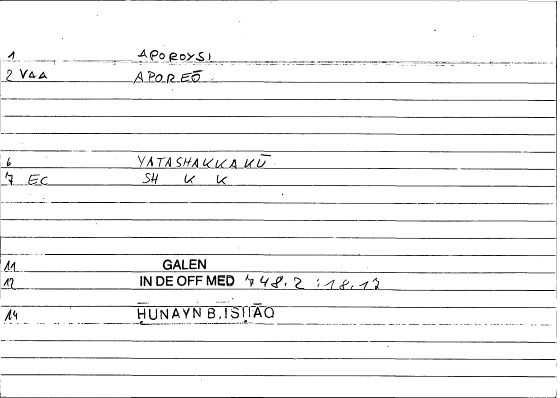 1 APOROYSI
2 VAA APOREŌ
6 YATASHAKKAKŪ
7 EC SH K K
11 GALEN
12 IN DE OFF MED 748.2 :18.17
14 ḤUNAYN B. ISḤĀQ